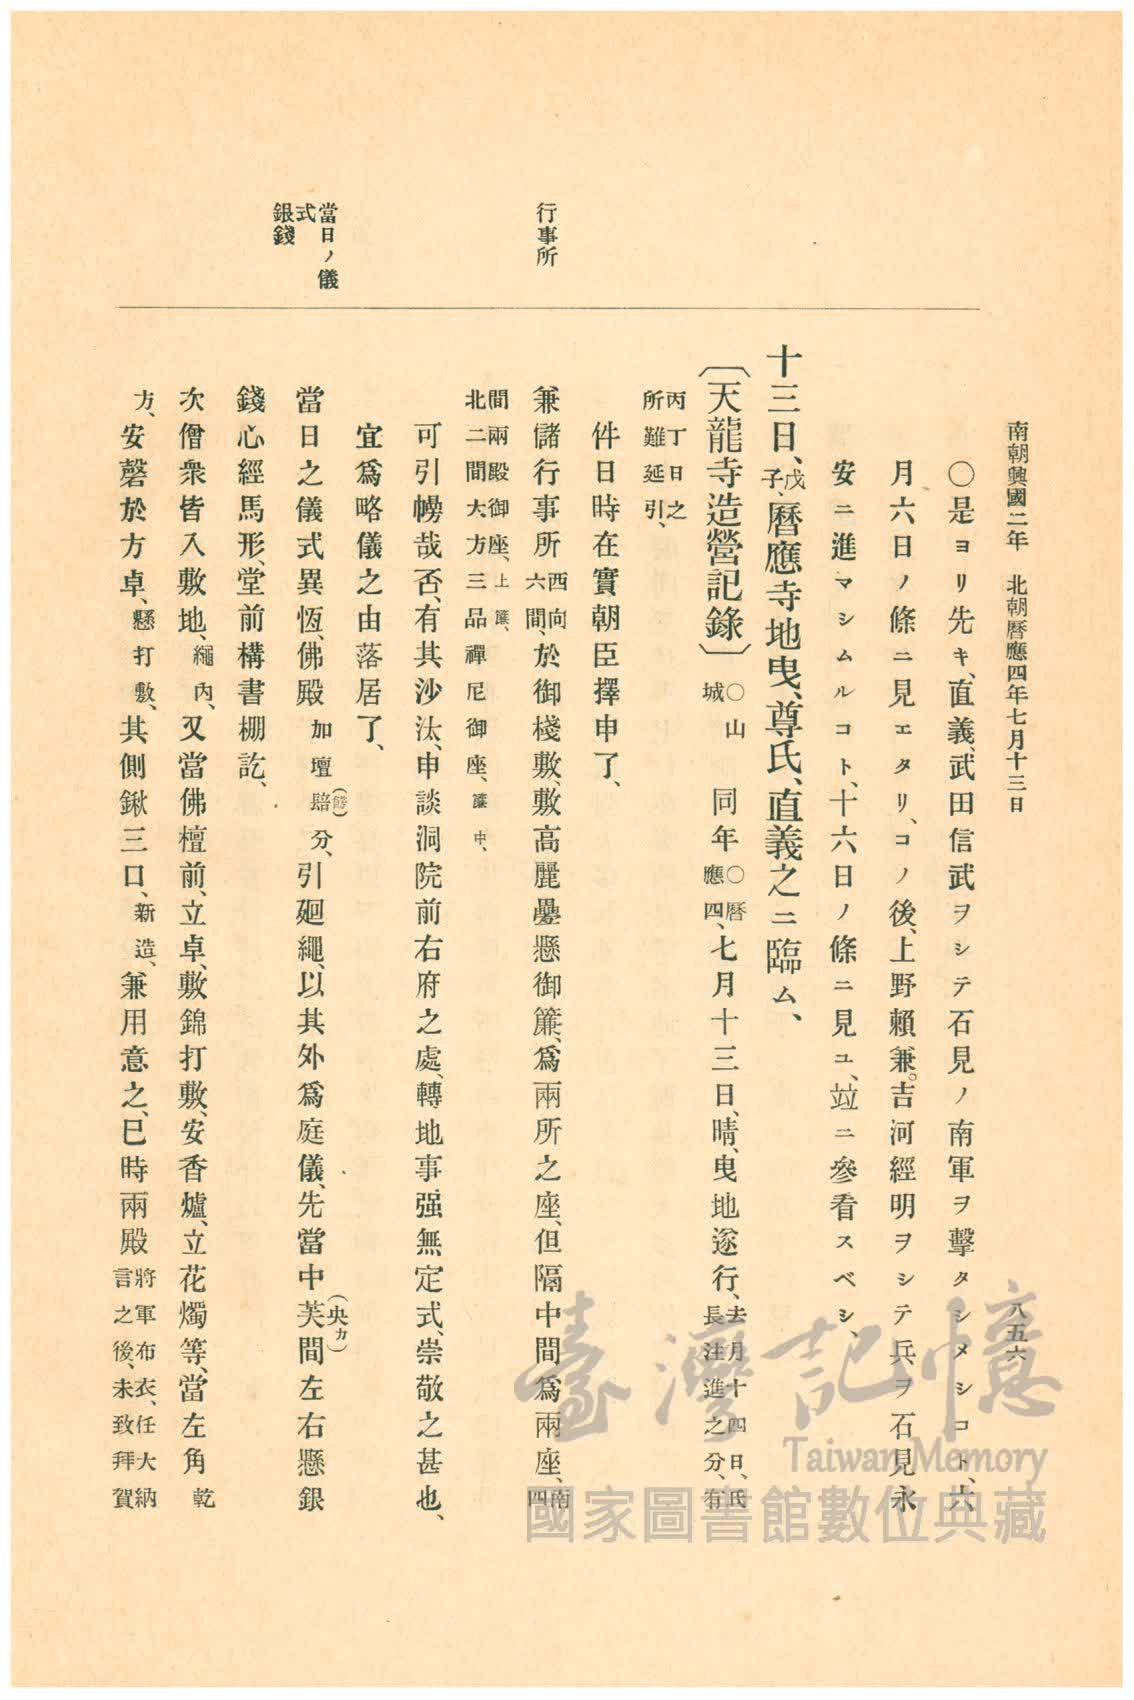 南朝興國二年 北朝曆應四年七月十三日 八五六
○是ヨリ先キ、直義、武田信武ヲシテ石見ノ南軍ヲ擊タシメシコト、六
月六日ノ條ニ見エタリ、コノ後、上野賴兼。吉河經明ヲシテ兵ヲ石見永
安ニ進マシムルコト、十六日ノ條ニ見ユ、竝ニ參看スベシ、
十三日、戊子、曆應寺地曳、尊氏、直義之ニ臨ム、
〔天龍寺造營記錄〕○山城 同年○曆應四、七月十三日、晴、曳地遂行、去月十四日、氏長注進之分、有
丙丁日之所難延引、
件日時在實朝臣擇申了、
行事所
兼儲行事所西向六間、於御棧敷、敷高麗疊懸御簾、爲兩所之座、但隔中間爲兩座、南四
間兩殿御座、上簾、北二間大方三品禪尼御座、簾中、
可引幔哉否、有其沙汰、申談洞院前右府之處、轉地事、强無定式、崇敬之甚也、
宜爲略儀之由落居了、
當日ノ儀式
銀錢
當日之儀式異恆、佛殿加壇(餝)分、引廻繩、以其外爲庭儀、先當中芙(央カ)間左右懸銀
錢心經馬形、堂前構書棚訖、
次僧衆皆入敷地、繩內、又當佛檀前、立卓、敷錦打敷、安香爐、立花燭等、當左角乾
方、安磬於方卓、懸打敷、其側鍬三口、新造、兼用意之、巳時兩殿將軍布衣、任大納言之後、未致拜賀
臺灣記憶
Taiwan Memory
國家圖書館數位典藏